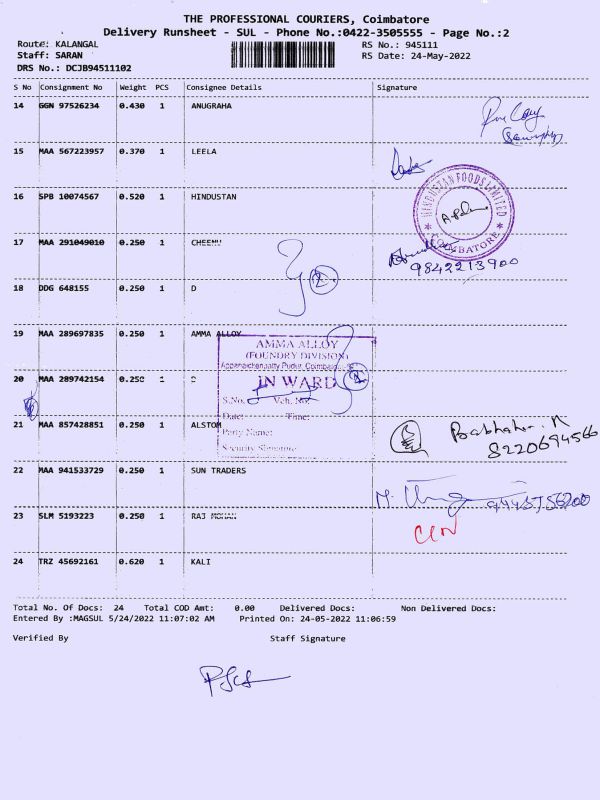 THE PROFESSIONAL COURIERS, Coimbatore
Delivery Runsheet - SUL - Phone No.:0422-3505555 - Page No.:2
Route: KALANGAL RS No.: 945111
Staff: SARAN RS Date: 24-May-2022
DRS No.: DCJB94511102
S No Consignment No Weight PCS Consignee Details Signature
14 GGN 97526234 0.430 1 ANUGRAHA
15 MAA 567223957 0.370 1 LEELA
HINDUSTAN FOODS LIMITED
COIMBATORE
16 SPB 10074567 0.520 1 HINDUSTAN
17 MAA 291049010 0.250 1 CHEENU
9842213900
2
18 DDG 648155 0.250 1 D
19 MAA 289697835 0.250 1 AMMA ALLOY
AMMA ALLOY
(FOUNDRY DIVISION)
20 MAA 289742154 0.250 1 D
IN WARD
S.No. Veh. No.
Date: Time:
21 MAA 857428851 0.250 1 ALSTOM
Party Name:
Security Signature
8220694566
22 MAA 941533729 0.250 1 SUN TRADERS
23 SLM 5193223 0.250 1 RAJ MOHAN
24 TRZ 45692161 0.620 1 KALI
Total No. Of Docs: 24 Total COD Amt: 0.00 Delivered Docs: Non Delivered Docs:
Entered By :MAGSUL 5/24/2022 11:07:02 AM Printed On: 24-05-2022 11:06:59
Verified By Staff Signature